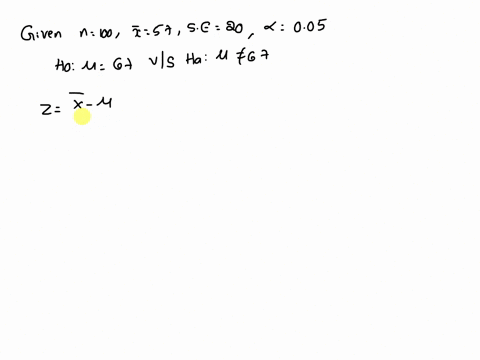 Given n=100, x̄=57, S.E=20, α=0.05
Ho: μ=67 v/s Ha: μ≠67
Z= x̄-μ